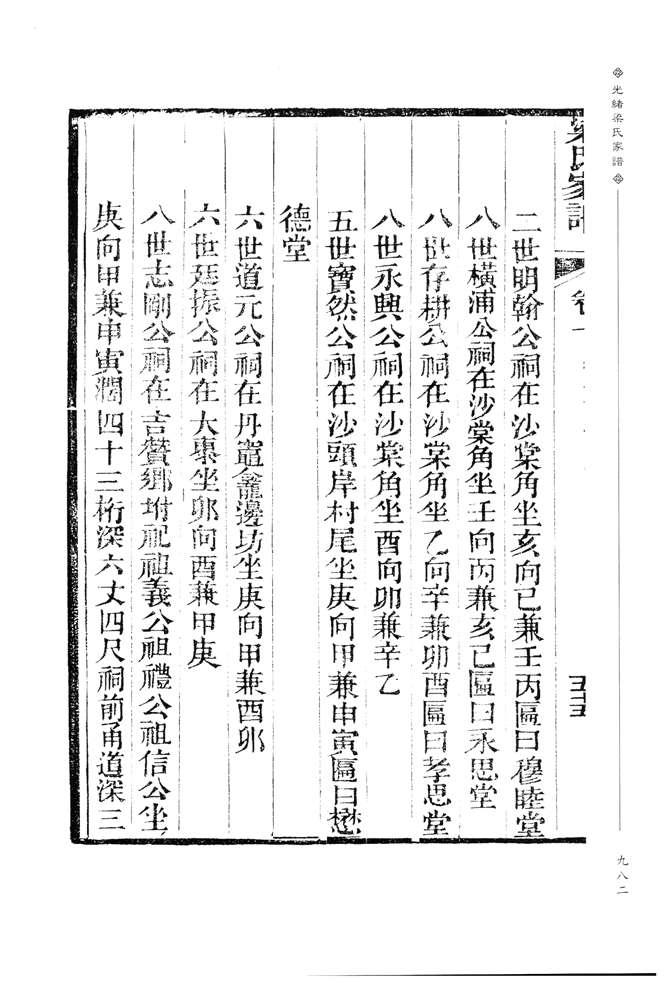 光緒梁氏家譜
梁氏家譜 卷一
五十五
二世明翰公祠在沙棠角坐亥向巳兼壬丙區曰穆睦堂
八世橫浦公祠在沙棠角坐壬向丙兼亥己區曰永思堂
八世存耕公祠在沙棠角坐乙向辛兼卯酉區曰孝思堂
八世永興公祠在沙棠角坐酉向卯兼辛乙
五世寶然公祠在沙頭岸村尾坐庚向甲兼申寅區曰懋
德堂
六世道元公祠在丹竈龕邊坊坐庚向甲兼酉卯
六世廷振公祠在大㮚坐卯向酉兼甲庚
八世志剛公祠在吉贊鄉坿祀祖義公祖禮公祖信公坐
庚向甲兼申寅濶四十三桁深六丈四尺祠前甬道深三
九八二